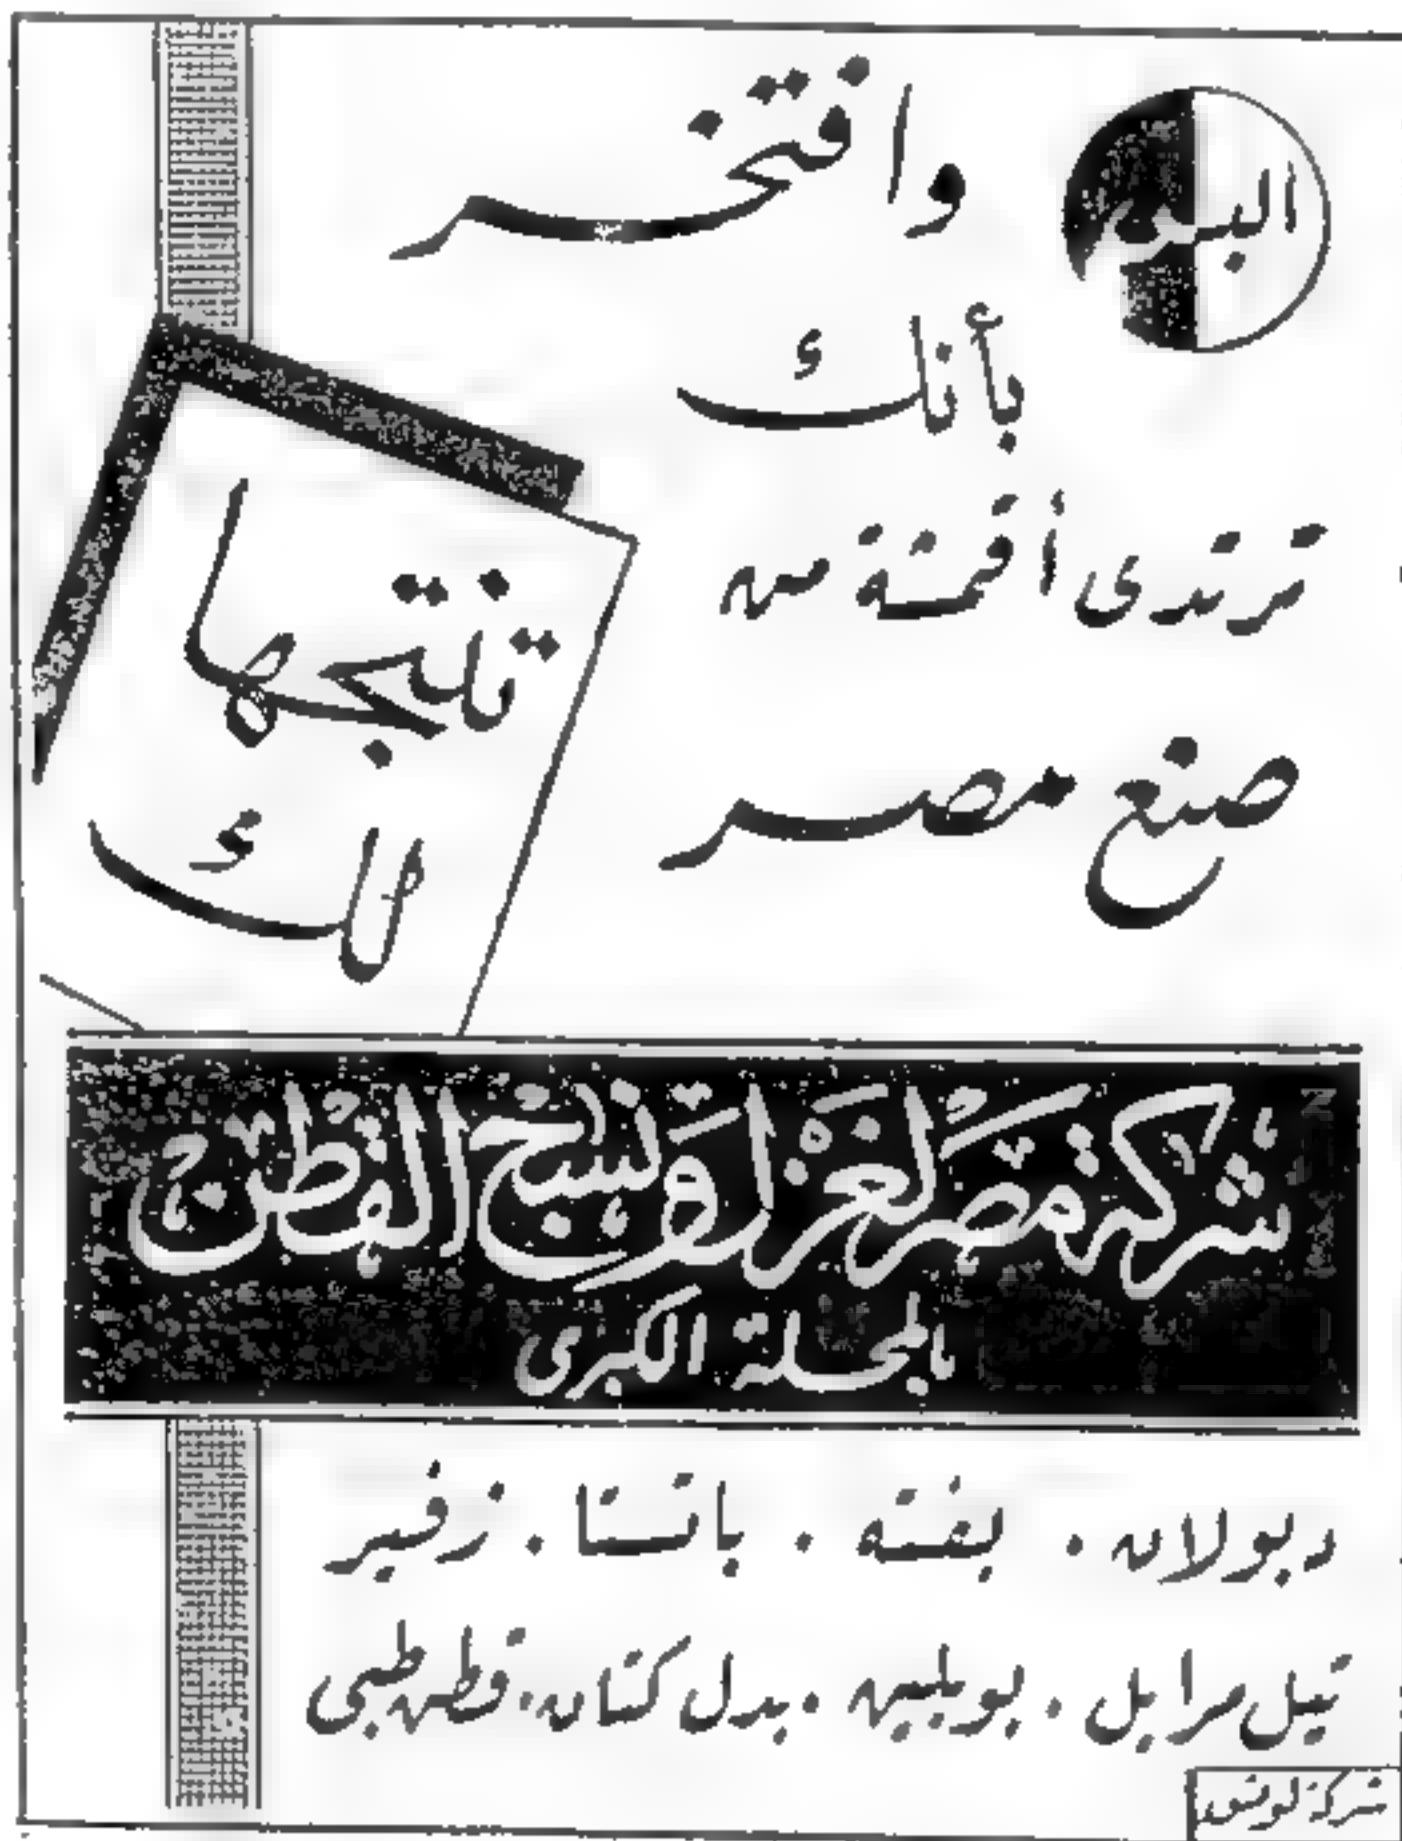 البس وافتخر
بأنك
ترتدى أقمشة من
صنع مصر
تنتجها
لك
شركة مصر لغزل ونسج القطن
بالمحلة الكبرى
دبولان . بفته . باتستا . زفير
تيل مرايل . بوبلين . بدل كتان . قطن طبى
شركة